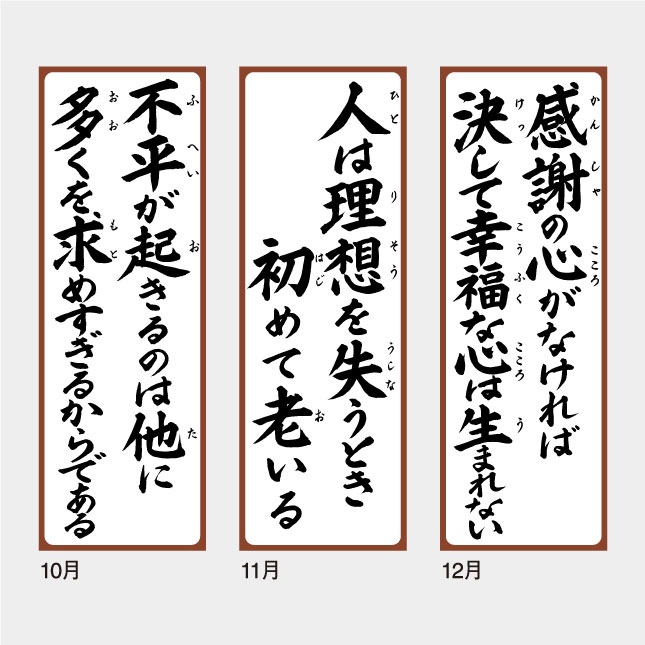 不平が起きるのは他に
多くを、求めすぎるからである
10月
人は理想を失うとき
初めて老いる
11月
感謝の心がなければ
決して幸福な心は生まれない
12月